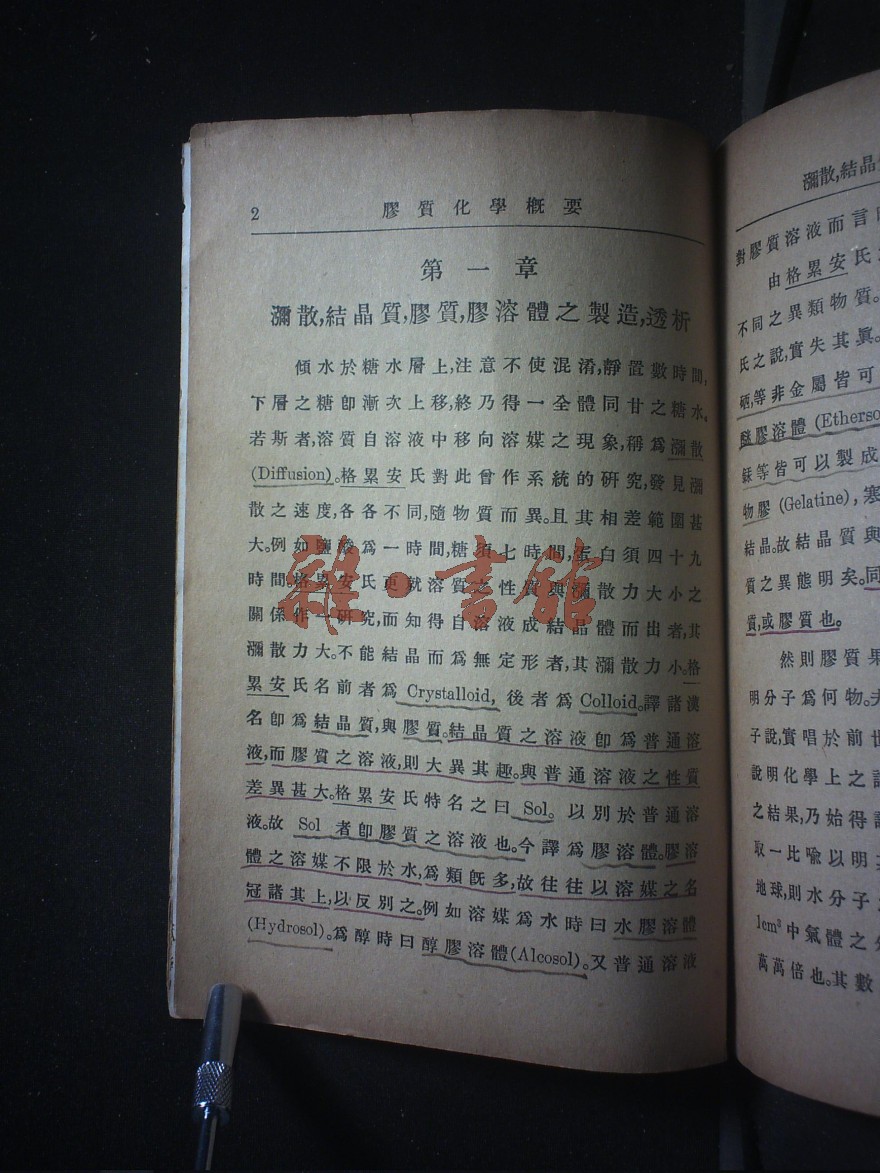 2
膠質化學概要
第一章
瀰散,結晶質,膠質,膠溶體之製造,透析
傾水於糖水層上,注意不使混淆,靜置數時間,
下層之糖卽漸次上移,終乃得一全體同甘之糖水。
若斯者,溶質自溶液中移向溶媒之現象,稱爲瀰散
(Diffusion)。格累安氏對此曾作系統的硏究,發見瀰
散之速度,各各不同,隨物質而異。且其相差範圍甚
大。例如鹽酸爲一時間,糖須七時間,蛋白須四十九
時間。格累安氏更就溶質之性質與瀰散力大小之
關係作一硏究,而知得自溶液成結晶體而出者,其
瀰散力大。不能結晶而爲無定形者,其瀰散力小。格
累安氏名前者爲 Crystalloid, 後者爲 Colloid。譯諸漢
名卽爲結晶質,與膠質。結晶質之溶液卽爲普通溶
液,而膠質之溶液,則大異其趣。與普通溶液之性質
差異甚大。格累安氏特名之曰 Sol。以別於普通溶
液。故 Sol 者卽膠質之溶液也。今譯爲膠溶體。膠溶
體之溶媒不限於水,爲類旣多,故往往以溶媒之名
冠諸其上,以反別之。例如溶媒爲水時曰水膠溶體
(Hydrosol)。爲醇時曰醇膠溶體(Alcosol)。又普通溶液
瀰散,結晶
對膠質溶液而言
由格累安氏
不同之異類物質。
氏之說,實失其眞。
硒,等非金屬皆可
醚膠溶體 (Etherso
等皆可以製成
物膠 (Gelatine), 寒
結晶。故結晶質與
質之異態明矣。同
質,或膠質也。
然則膠質果
明分子爲何物。夫
子說,實唱於前世
說明化學上之
之結果,乃始得
取一比喩以明其
地球,則水分子
1cm³ 中氣體之
萬萬倍也。其數
雜·書館